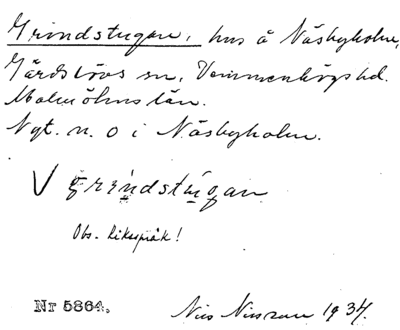 Grindstugan, hus å Näsbyholm,
Gärdslövs sn, Vemmenhögs hd.
Malmöhus län.
Nyt. n. o i Näsbyholm.
V grindstúgan
Obs. Riksspråk!
Nr 5864. Nils Nilsson 1934.